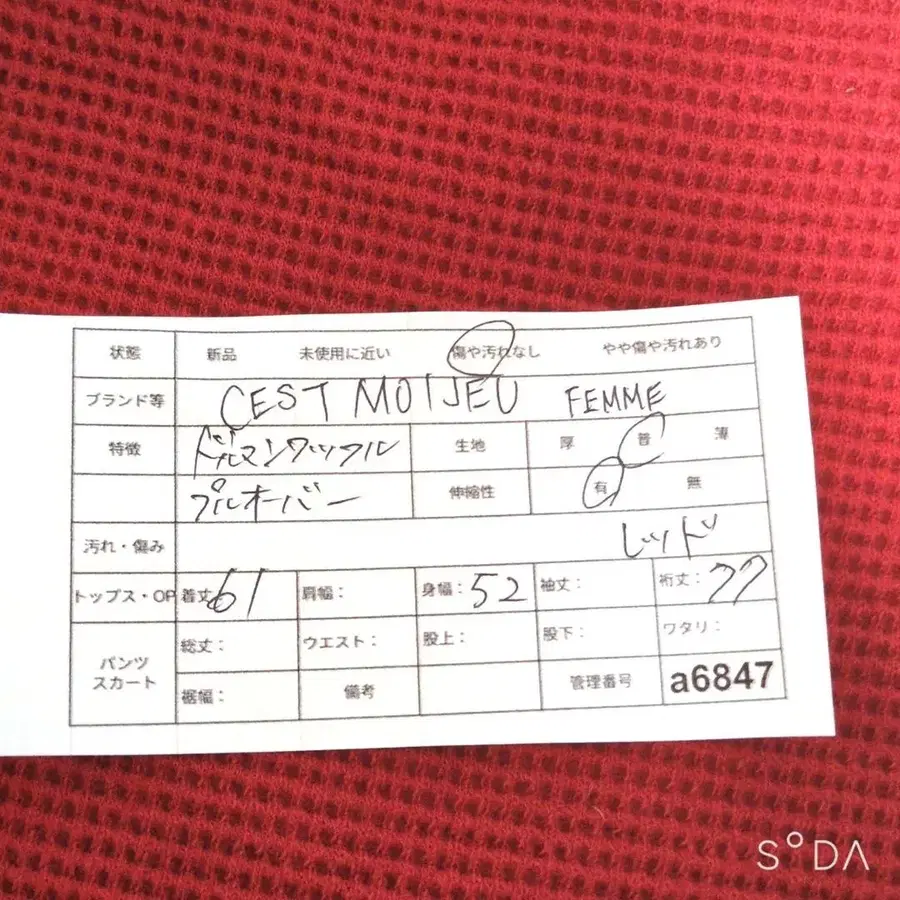 状態 新品 未使用に近い 傷や汚れなし やや傷や汚れあり
ブランド等 CEST MOIJEU FEMME
特徴 ドルマンワッフル 生地 厚 普 薄
プルオーバー 伸縮性 有 無
汚れ・傷み レッド
トップス・OP 着丈61 肩幅: 身幅:52 袖丈: 裄丈:77
パンツ スカート 総丈: ウエスト: 股上: 股下: ワタリ:
裾幅: 備考 管理番号 a6847
SODA